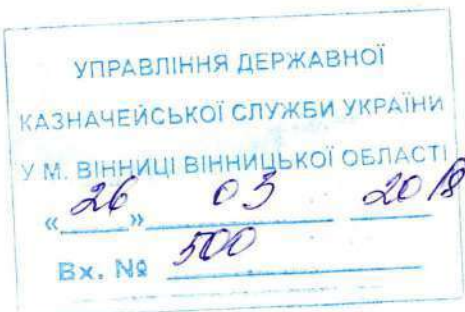 УПРАВЛІННЯ ДЕРЖАВНОЇ
КАЗНАЧЕЙСЬКОЇ СЛУЖБИ УКРАЇНИ
У М. ВІННИЦІ ВІННИЦЬКОЇ ОБЛАСТІ
« 26 » 03 2018
Вх. № 500